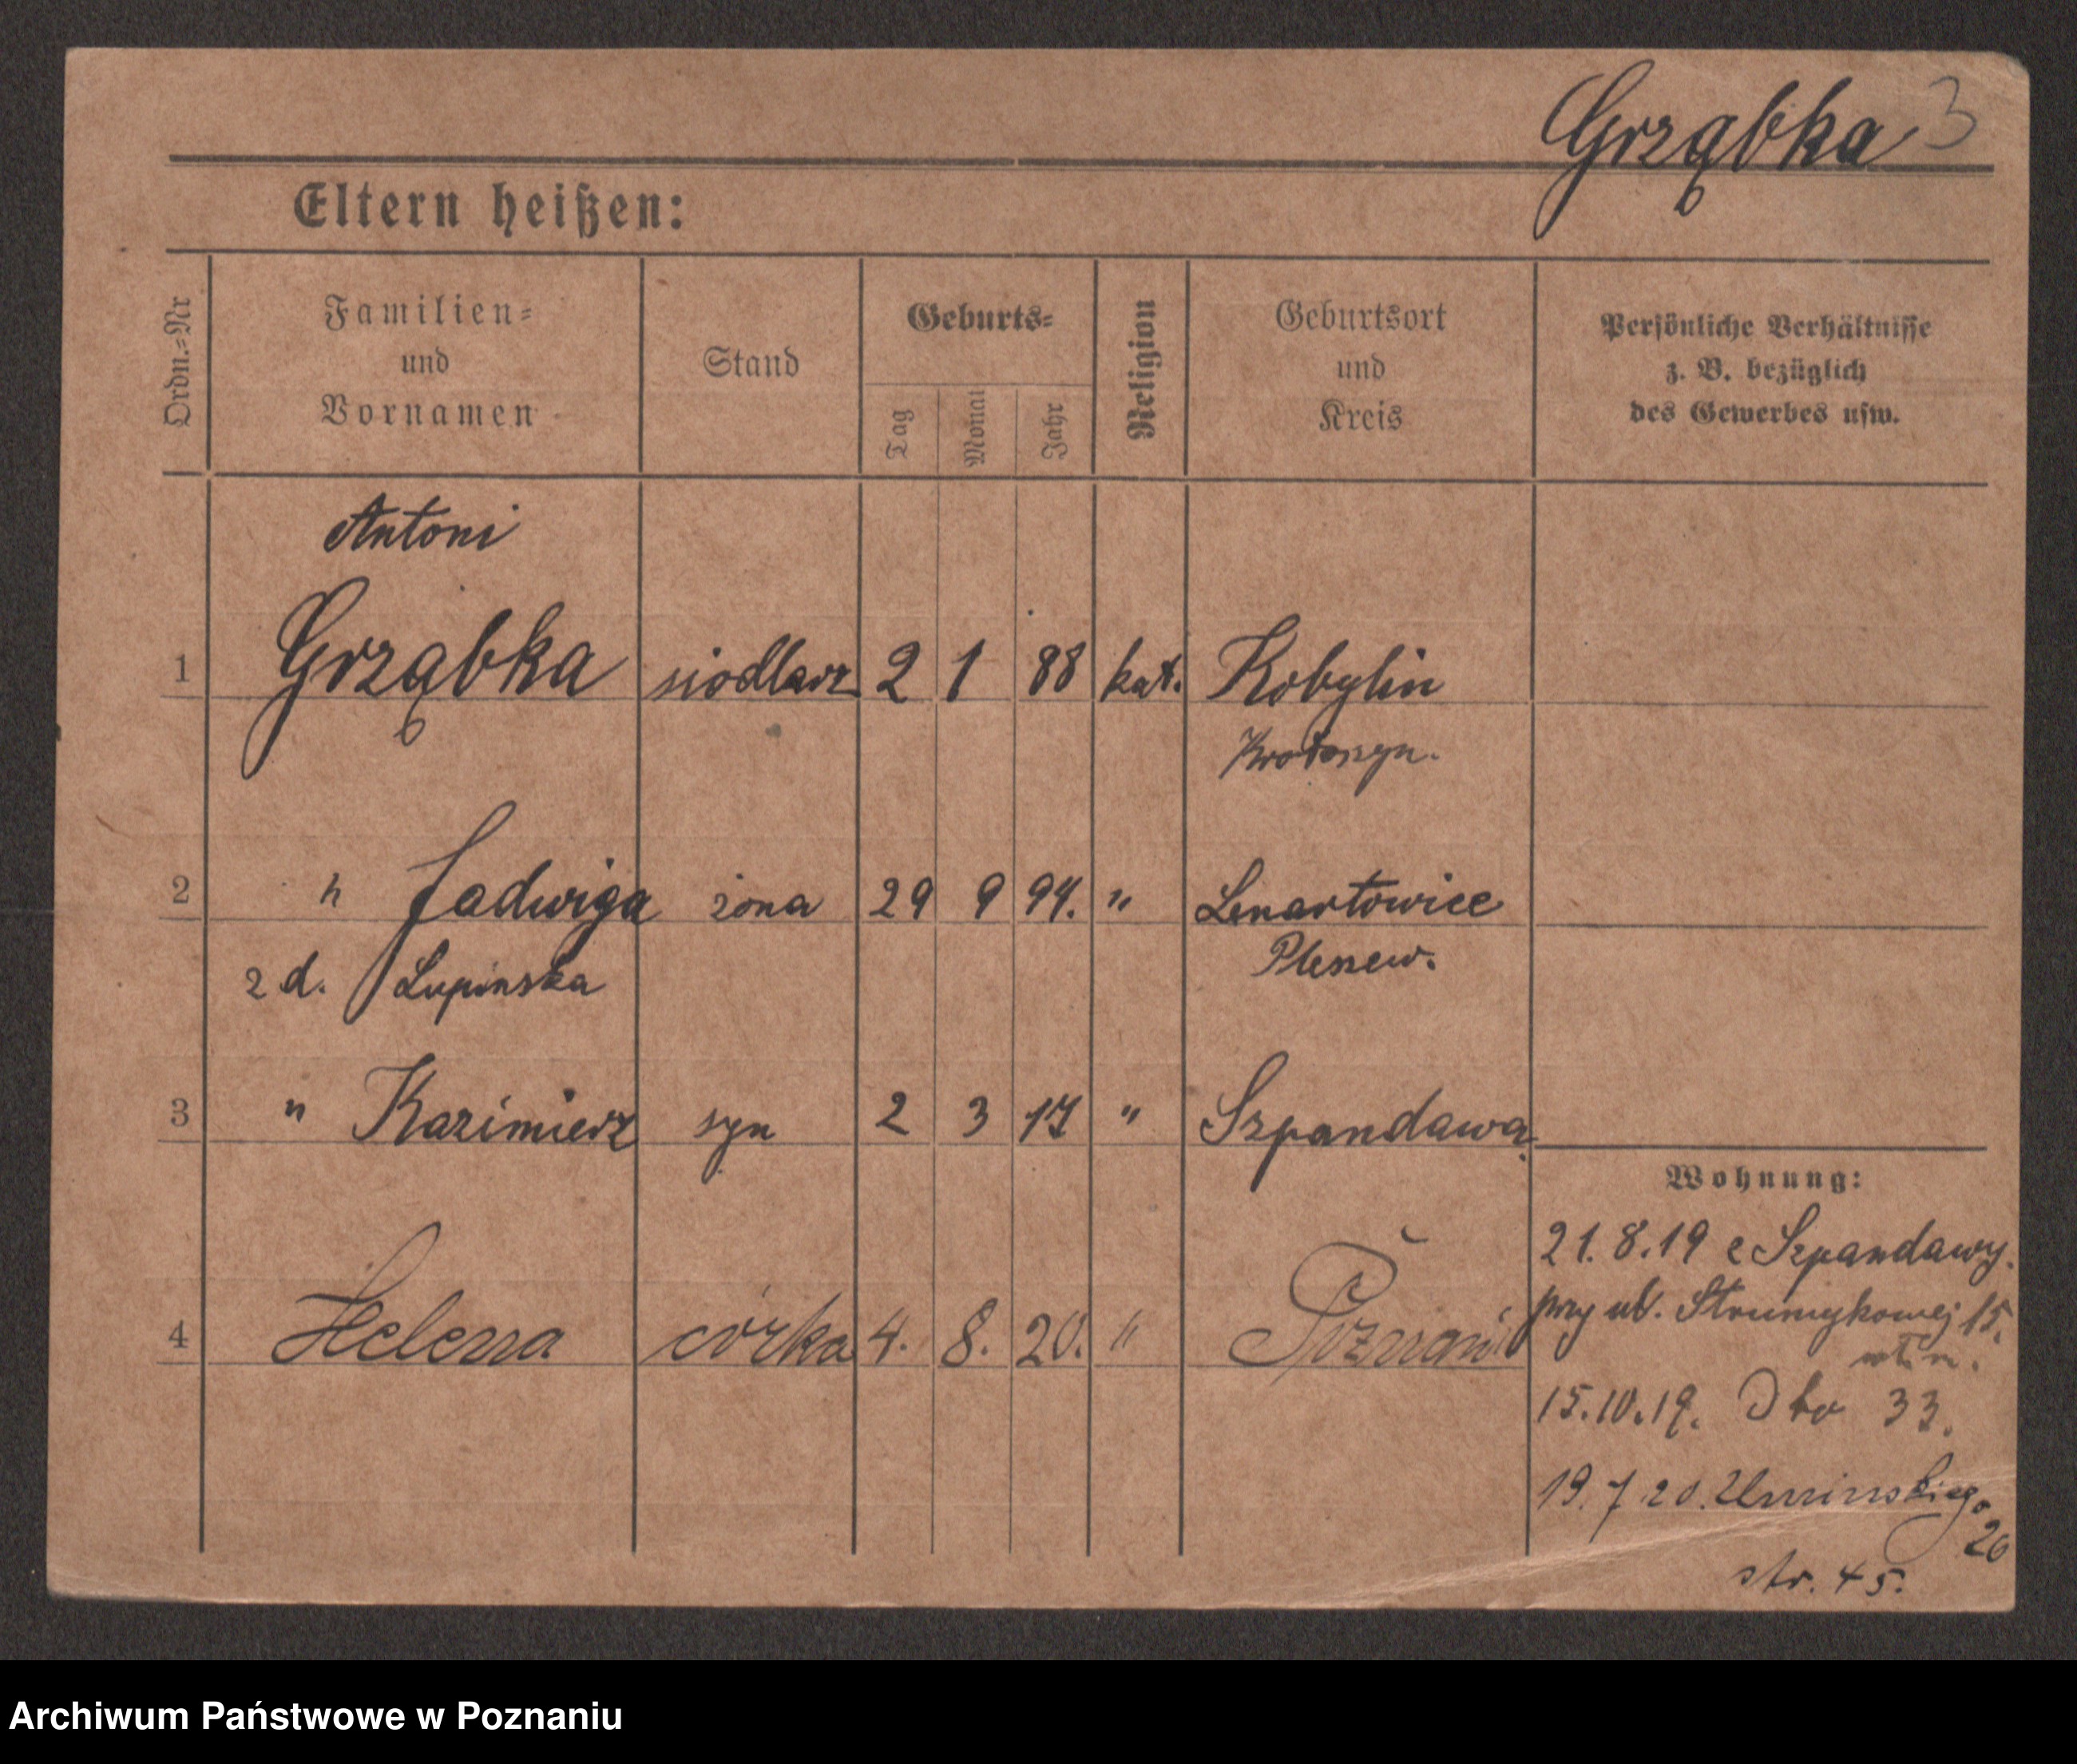 Grząbka 3
Eltern heißen:
Ordn.-Nr
Familien-
und
Vornamen
Stand
Geburts-
Tag
Monat
Jahr
Religion
Geburtsort
und
Kreis
Persönliche Verhältnisse
z. B. bezüglich
des Gewerbes usw.
Antoni
1 Grząbka siodlarz 2 1 88 kat. Kobylin
Krotoszyn.
2 " Jadwiga żona 29 9 94. " Lenartowice
z d. Lupinska Pleszew.
3 " Kazimierz syn 2 3 17 " Szpandawa
Wohnung:
21.8.19 z Szpandawy.
przy ul. Strumykowej 15.
4 Helena córka 4. 8. 20. " Poznań
15.10.19. Dto 33.
19.7.20. Uminskiego
20
str. 45.
Archiwum Państwowe w Poznaniu